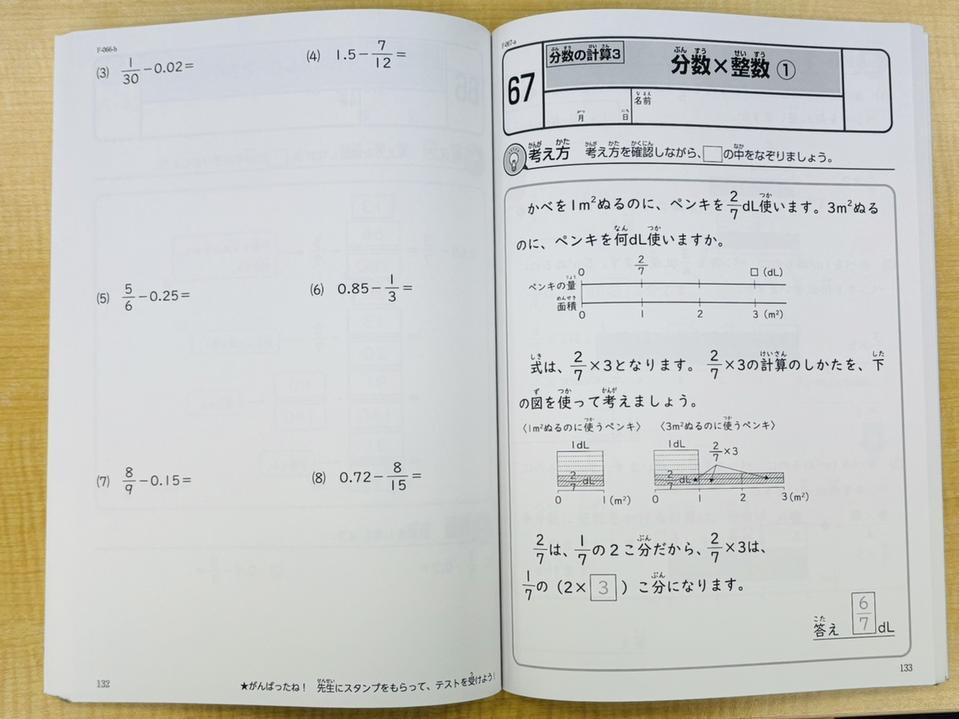 F-066-b
(3) 1/30 − 0.02 =
(4) 1.5 − 7/12 =
(5) 5/6 − 0.25 =
(6) 0.85 − 1/3 =
(7) 8/9 − 0.15 =
(8) 0.72 − 8/15 =
132
★がんばったね! 先生にスタンプをもらって、テストを受けよう!
F-067-a
67
分数の計算3
分数×整数 ①
月 日
名前
考え方 考え方を確認しながら、□の中をなぞりましょう。
かべを1m²ぬるのに、ペンキを2/7dL使います。3m²ぬる
のに、ペンキを何dL使いますか。
0 2/7 □(dL)
ペンキの量
面積
0 1 2 3 (m²)
式は、2/7×3となります。 2/7×3の計算のしかたを、下
の図を使って考えましょう。
〈1m²ぬるのに使うペンキ〉 〈3m²ぬるのに使うペンキ〉
1dL 1dL 2/7×3
2/7 dL 2/7 dL
0 1 (m²) 0 1 2 3 (m²)
2/7は、1/7の2こ分だから、2/7×3は、
1/7の(2× 3 )こ分になります。
答え 6/7 dL
133